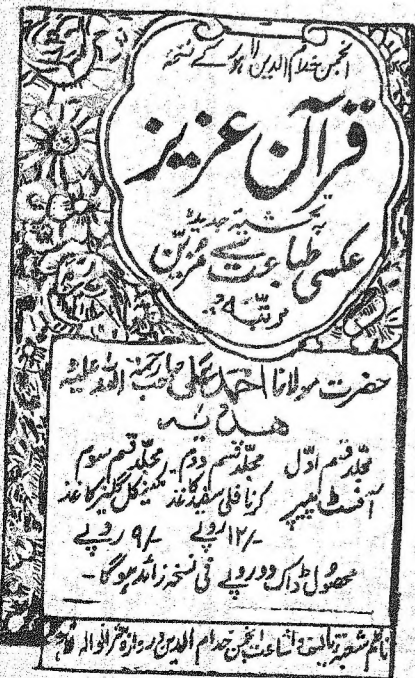 انجمن خدام الدین لاہور کے نسخہ
قرآن عزیز
بحشیۂ جدیدہ
عکسی طباعت سے مزین
مرتبہ:
حضرت مولانا احمد علی صاحب رحمۃ اللہ علیہ
ھدیہ
مجلد قسم اوّل مجلد قسم دوم۔ مجلد قسم سوم
آفسٹ پیپر کرنافلی سفید کاغذ مکینیکل گلیز کاغذ
۱۲/- روپے ۹/- روپے
محصول ڈاک دو روپے فی نسخہ زائد ہوگا۔
ناظم شعبۂ تالیف و اشاعت انجمن خدام الدین دروازہ شیرانوالہ لاہور